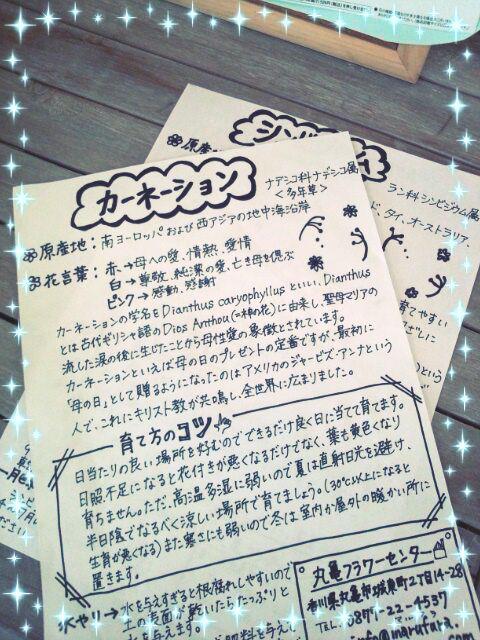 カーネーション
ナデシコ科ナデシコ属
<多年草>
原産地：南ヨーロッパおよび西アジアの地中海沿岸
花言葉：赤→母への愛、情熱、愛情
白→尊敬、純潔の愛、亡き母を偲ぶ
ピンク→感動、感謝
カーネーションの学名をDianthus caryophyllusといい、Dianthus
とは古代ギリシャ語のDios Anthou(=神の花)に由来し、聖母マリアの
流した涙の後に生じたことから母性愛の象徴とされています。
カーネーションといえば母の日のプレゼントの定番ですが、最初に
「母の日」として贈るようになったのはアメリカのジャービズ・アンナという
人で、これにキリスト教が共鳴し、全世界に広まりました。
育て方のコツ
日当たりの良い場所を好むのでできるだけ良く日に当てて育てます。
日照不足になると花付きが悪くなるだけでなく、葉も黄色くなり
育ちません。ただ、高温多湿に弱いので夏は直射日光を避け、
半日陰でなるべく涼しい場所で育てましょう。(30℃以上になると
生育が悪くなる)また寒さにも弱いので冬は室内か屋外の暖かい所に
置きます。
水やり→水を与えすぎると根腐れしやすいので
土の表面が乾いたらたっぷりと
水を与えます。
丸亀フラワーセンター
香川県丸亀市城東町2丁目14-28
TEL 0877-22-4537
原産
ラン科シンビジウム属
ド、タイ、オーストラリア、
育てやすい